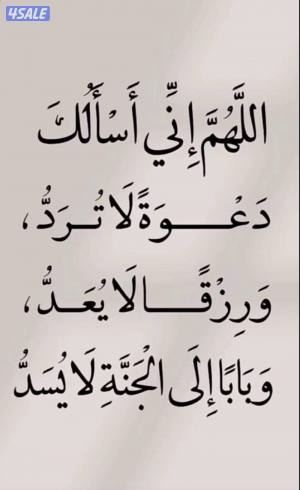 4SALE
اللَّهُمَّ إِنِّي أَسْأَلُكَ
دَعْوَةً لَا تُرَدُّ،
وَرِزْقًا لَا يُعَدُّ،
وَبَابًا إِلَى الْجَنَّةِ لَا يُسَدُّ